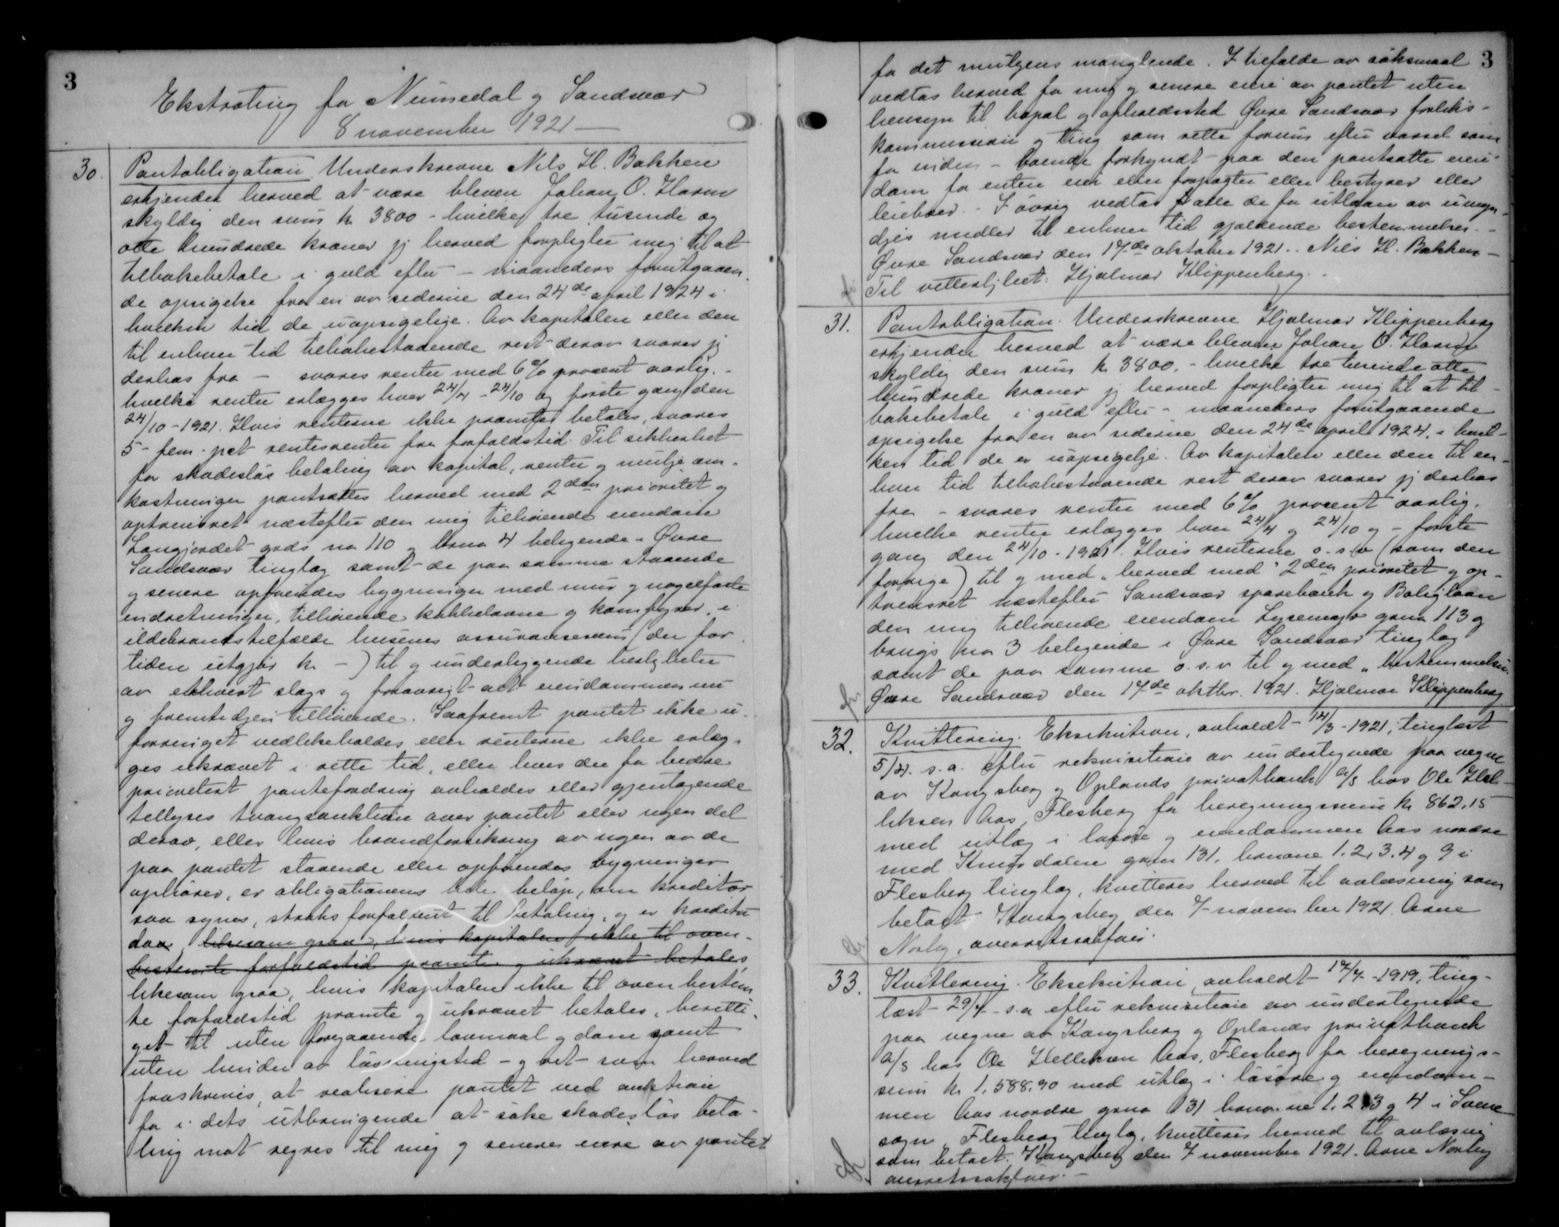 3
Ekstrating for Numedal og Sandsvær
8 november 1921 —
30. Pantobligation Underskrevne Nils H. Bakken
erkjender herved at være bleven Johan O. Hasnes
skyldig den sum kr 3800 - hvilke tre tusinde og
otte hundrede kroner jeg herved forpligter mig til at
tilbakebetale i guld efter - maaneders forutgaaen-
de opsigelse fra en av siderne den 24de april 1924 i
hvilken tid de uopsigelige. Av kapitalen eller den
til enhver tid tilbakestaaende rest derav svarer jeg
derhos fra - svares renter med 6% procent aarlig. -
hvilke renter erlægges hver 24/4 - 24/10 og første gang den
24/10 - 1921. Hvis renterne ikke promte betales, svares
5 - fem - pct rentersrenter fra forfaldstid. Til sikkerhet
for skadesløs betaling av kapital, renter og mulige om-
kostninger pantsættes herved med 2den prioritet og
optrinsret næstefter den mig tilhørende eiendom
Langjordet grds no 110 og brno 4 beligende i Øvre
Sandsvær tinglag samt de paa samme staaende
og senere opførendes bygninger med mur og nagelfaste
indretninger, tilhørende kakkelovne og komfyrer, i
ildebrandstilfælde husenes assuransesum (der for
tiden utgjør kr -) til og underliggende herligheter
av ethvert slags og forøvrigt alt eiendommen nu
og fremtidigen tilhørende. Saafremt pantet ikke u-
forringet vedlikeholdes eller renterne ikke erlæg-
ges ukrævet i rette tid, eller hvis der for bedre
prioritert pantefordring avholdes eller gjentagende
tellyses tvangsauktion over pantet eller nogen del
derav, eller hvis brandforsikring av nogen av de
paa pantet staaende eller opførendes bygninger
ophører, er obligationens hele beløp, om kreditor
saa synes, straks forfaldent til betaling, og er kreditor
da likesom ogsaa, hvis kapitalen ikke til oven-
bestemte forfaldstid promte og ukrævet betales,
likesom ogsaa, hvis kapitalen ikke til oven bestem-
te forfaldstid promte og ukrævet betales, beretti-
get til uten foregaaende lovmaal og dom samt
uten hinder av løsningstid - og ret som herved
fraskrives, at realisere pantet ved auktion
for i dets utbringende at søke skadesløs beta-
ling mot regres til mig og senere eiere av pantet
3
for det muligens manglende. I tilfælde av søksmaal
vedtas herved for mig og senere eiere av pantet uten
hensyn til bopæl og opholdssted Øvre Sandsvær forliks-
kommission og ting som rette forum efter varsel som
for inden - boende forkyndt paa den pantsatte eien-
dom for enten eier eller forpagter eller bestyrer eller
leieboer. - I øvrig vedtas alle de for utlaan av umyn-
diges midler til enhver tid gjældende bestemmelser. -
Øvre Sandsvær den 17de oktober 1921. Nils H. Bakken -
Til vitterlighet: Hjalmar Klippenberg. -
31. Pantobligation. Underskrevne Hjalmar Klippenberg
erkjender herved at være bleven Johan O. Hasnes
skyldig den sum kr 3800. - hvilke tre tusinde otte
hundrede kroner jeg herved forpligter mig til at til-
bakebetale i guld efter - maaneders forutgaaende
opsigelse fra en av siderne den 24de april 1924, i hvil-
ken tid de er uopsigelig. Av kapitalen eller den til en-
hver tid tilbakestaaende rest derav svarer jeg derhos
fra - svares renter med 6% procent aarlig,
hvilke renter erlægges hver 24/4 og 24/10 og - første
gang den 24/10 - 1921. Hvis renterne o.s.v (som den
forrige) til og med "herved med" 2den prioritet og op-
trinsret næstefter Sandsvær sparebank og Boliglaan
den mig tilhørende eiendom grno 113 og
brugs no 3 beligende i Øvre Sandsvær tinglag
samt de paa samme o.s.v til og med "bestemmelser.
Øvre Sandsvær den 17de oktbr. 1921. Hjalmar Klippenberg
32. Kvittering. Eksekution, avholdt 14/3 - 1921, tinglæst
5/4. s.a. efter rekvisition av undertegnede paa vegne
av Kongsberg og Oplands privatbank a/s hos Ole Hel-
liksen Aas, Flesberg for beregningssum kr 862,15
med utlæg i løsøre og eiendommen Aas nordre
med Kmosdalen grno 131, brnone 1. 2. 3. 4 og 9 i
Flesberg tinglag, kvitteres herved til avlæsning som
betalt Kongsberg, den 7 november 1921. Arne
Norby, overretssakfører.
33. Kvittering. Eksekution, avholdt 17/4 - 1919, ting-
læst 29/4 s.a efter rekvisition av undertegnede
paa vegne av Kongsberg og Oplands privatbank
a/s hos Ole Helliksen Aas, Flesberg for beregnings-
sum kr 1,588.90 med utlæg i løsøre og eiendom-
men Aas nordre grno 131 brno-ne 1, 2 3 og 4 i Svene
sogn, Flesberg tinglag, kvitteres herved til avlæsning
som betalt. Kongsberg den 7 november 1921. Arne Norby
overretssakfører. -